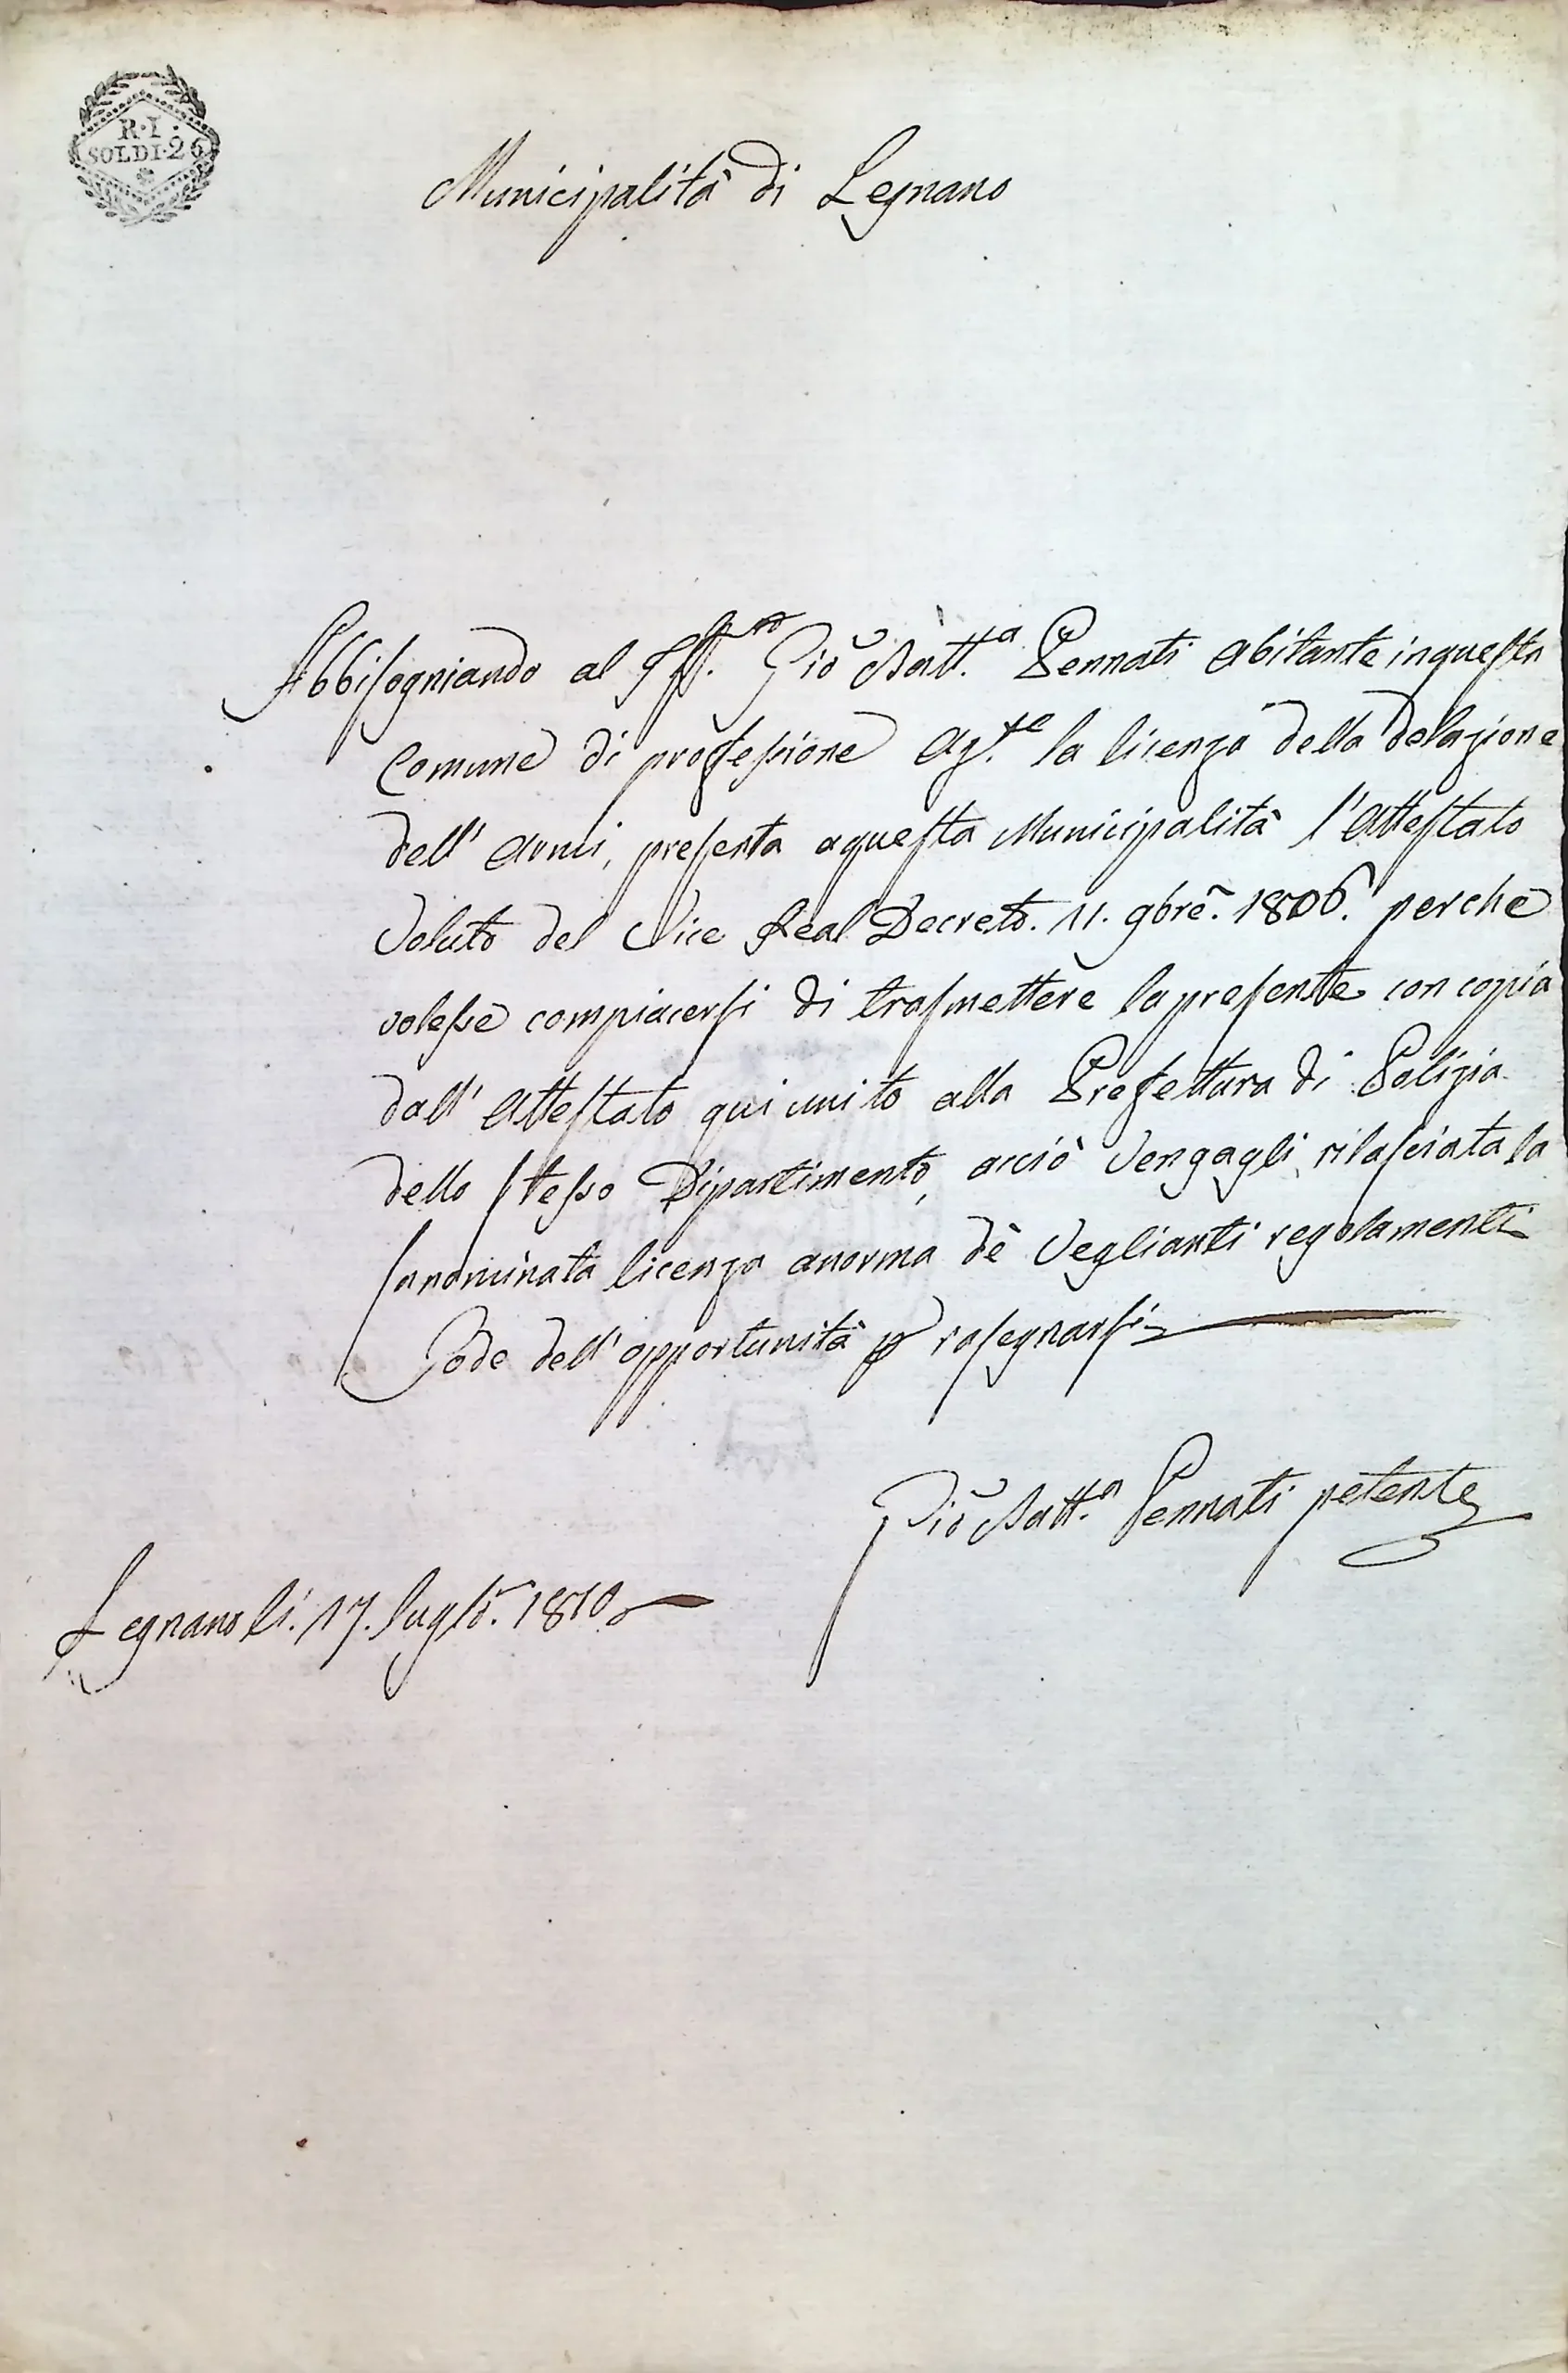 R·I·
SOLDI·26
Municipalità di Legnano
Abbisogniando al Sott.to Gio Batt.a Pennati abitante in questa
Comune di professione Ag.te la licenza della delazione
dell' Armi, presenta a questa Municipalità l'Attestato
Voluto del Vice Real Decreto. 11. 9bre. 1806. perche
volesse compiacersi di trasmettere la presente con copia
dall' Attestato qui unito alla Prefettura di Polizia
dello stesso Dipartimento, acciò Vengagli rilasciata la
sanominata licenza a norma dè Veglianti regolamenti
Gode dell' opportunità p rasegnarsi
Gio Batt.a Pennati petente
Legnano li. 17. luglio. 1810